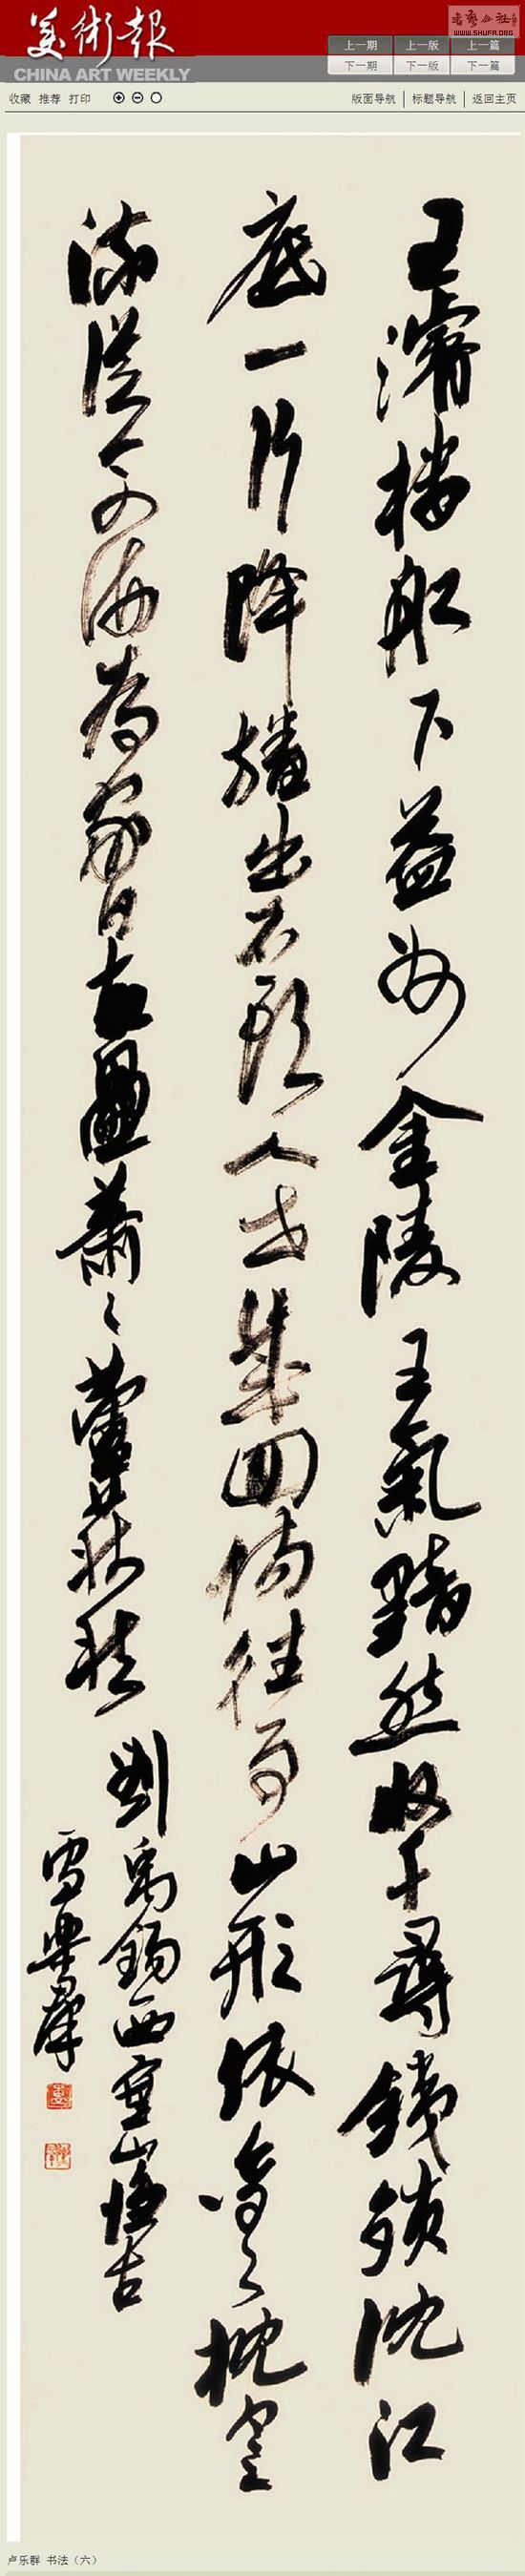 美術報
CHINA ART WEEKLY
書藝公社
WWW.SHUFA.ORG
上一期 上一版 上一篇
下一期 下一版 下一篇
收藏 推荐 打印 版面导航 标题导航 返回主页
王濬樓船下益州金陵王氣黯然收千尋鐵鎖沈江
底一片降旛出石頭人世幾回傷往事山形依舊枕寒
流從今四海為家日故壘蕭〻蘆荻秋
劉禹錫西塞山懷古
樂群
卢乐群 书法（六）